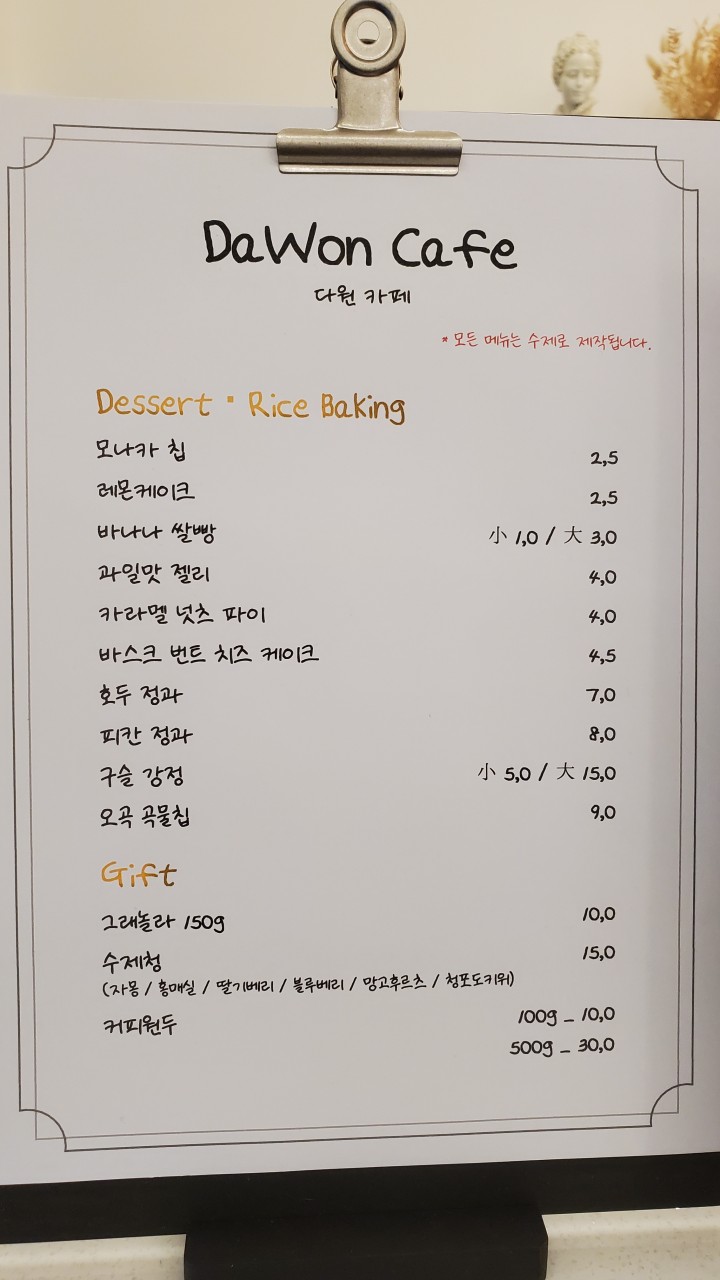 DaWon Cafe
다원 카페
* 모든 메뉴는 수제로 제작됩니다.
Dessert · Rice Baking
모나카 칩 2,5
레몬케이크 2,5
바나나 쌀빵 小 1,0 / 大 3,0
과일맛 젤리 4,0
카라멜 넛츠 파이 4,0
바스크 번트 치즈 케이크 4,5
호두 정과 7,0
피칸 정과 8,0
구슬 강정 小 5,0 / 大 15,0
오곡 곡물칩 9,0
Gift
그래놀라 150g 10,0
수제청 15,0
(자몽 / 홍매실 / 딸기베리 / 블루베리 / 망고후르츠 / 청포도키위)
커피원두 100g _ 10,0
500g _ 30,0